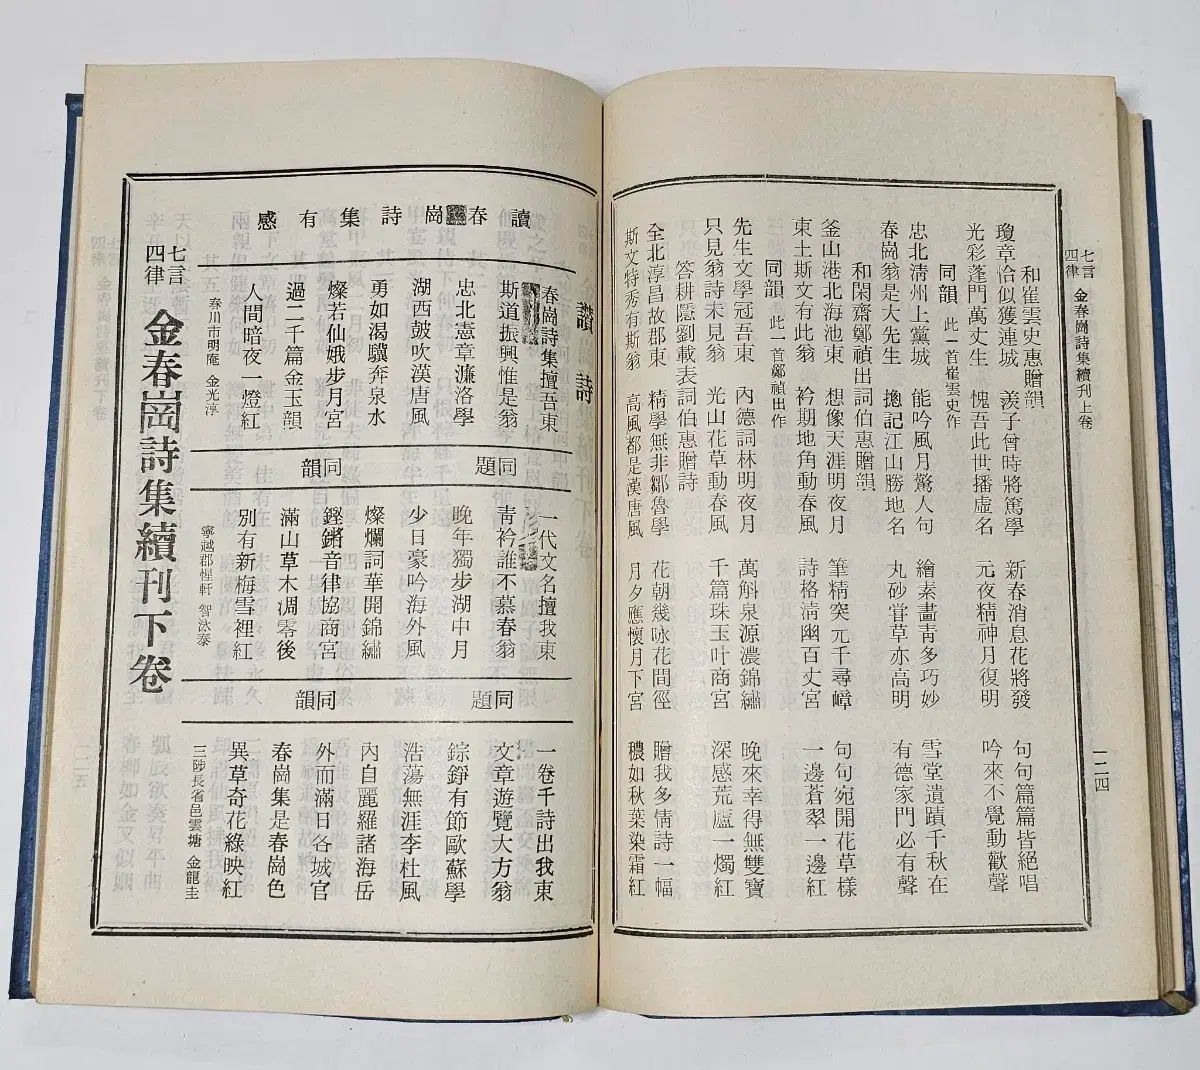 七言
四律
金春崗詩集續刊上卷
一二四
和崔雲史惠贈韻
瓊章恰似獲連城 羨子曾時將篤學 新春消息花將發 句句篇篇皆絕唱
光彩蓬門萬丈生 愧吾此世播虛名 元夜精神月復明 吟來不覺動歡聲
同韻 此一首崔雲史作
忠北清州上黨城 能吟風月驚人句 繪素畫靑多巧妙 雪堂遺蹟千秋在
春崗翁是大先生 摠記江山勝地名 丸砂甞草亦高明 有德家門必有聲
和閑齋鄭禎出詞伯惠贈韻
釜山港北海池東 想像天涯明夜月 筆精突兀千尋嶂 句句宛開花草樣
東土斯文有此翁 衿期地角動春風 詩格淸幽百丈宮 一邊蒼翠一邊紅
同韻 此一首鄭禎出作
先生文學冠吾東 內德詞林明夜月 萬斛泉源濃錦繡 晚來幸得無雙寶
只見翁詩未見翁 光山花草動春風 千篇珠玉叶商宮 深感荒廬一燭紅
答耕隱劉載表詞伯惠贈詩
全北淳昌故郡東 精學無非鄒魯學 花朝幾咏花間徑 贈我多情詩一幅
斯文特秀有斯翁 高風都是漢唐風 月夕應懷月下宮 穠如秋葉染霜紅
讀春崗詩集有感
春崗詩集擅吾東
斯道振興惟是翁
忠北憲章濂洛學
湖西皷吹漢唐風
勇如渴驥奔泉水
燦若仙娥步月宮
過二千篇金玉韻
人間暗夜一燈紅
春川市明庵 金光淳
同題 同韻
一代文名擅我東
靑衿誰不慕春翁
晚年獨步湖中月
少日豪吟海外風
燦爛詞華開錦繡
鏗鏘音律協商宮
滿山草木凋零後
別有新梅雪裡紅
寧越郡惺軒 智泳泰
同題 同韻
一卷千詩出我東
文章遊覽大方翁
錚錚有節歐蘇學
浩蕩無涯李杜風
內自麗羅諸海岳
外而滿日各城宮
春崗集是春崗色
異草奇花綠映紅
三陟長省邑雲塘 金龍圭
七言
四律
金春崗詩集續刊下卷